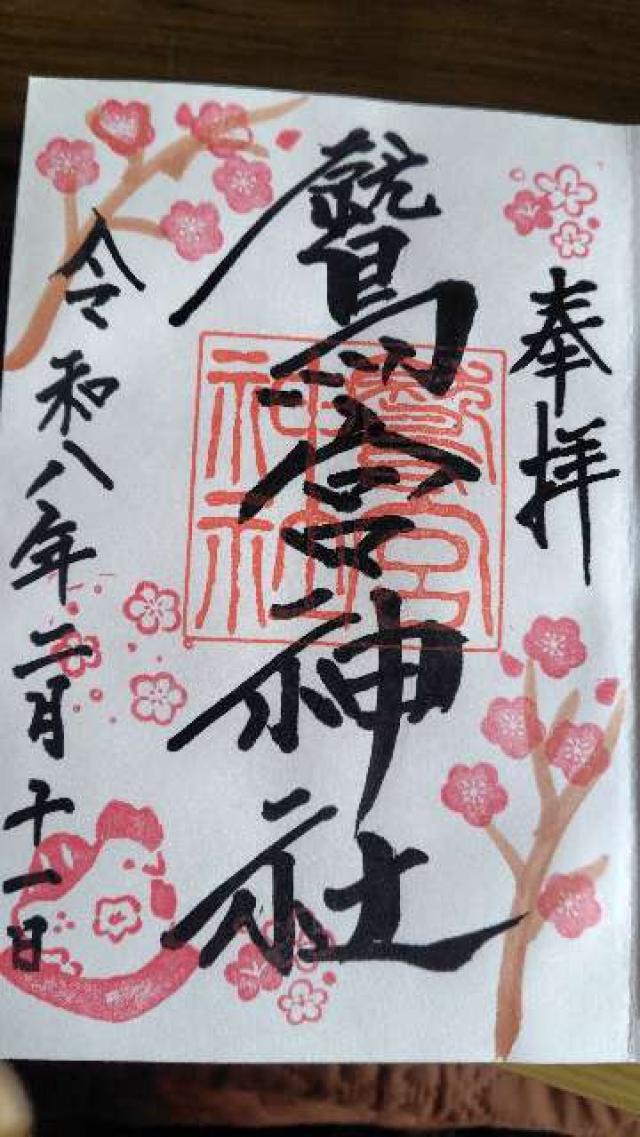 奉拝
鷲宮神社
鷲宮
神社
令和八年二月十一日